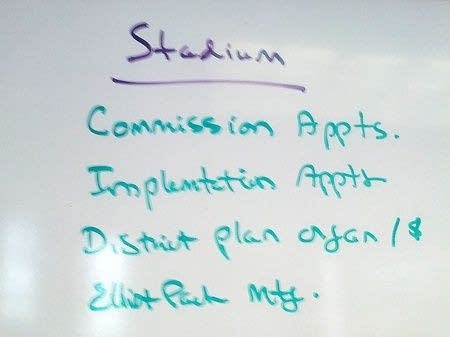 Stadium
Commission Appts.
Implmtation Appts
District plan organ/$
Elliot Park Mtg.